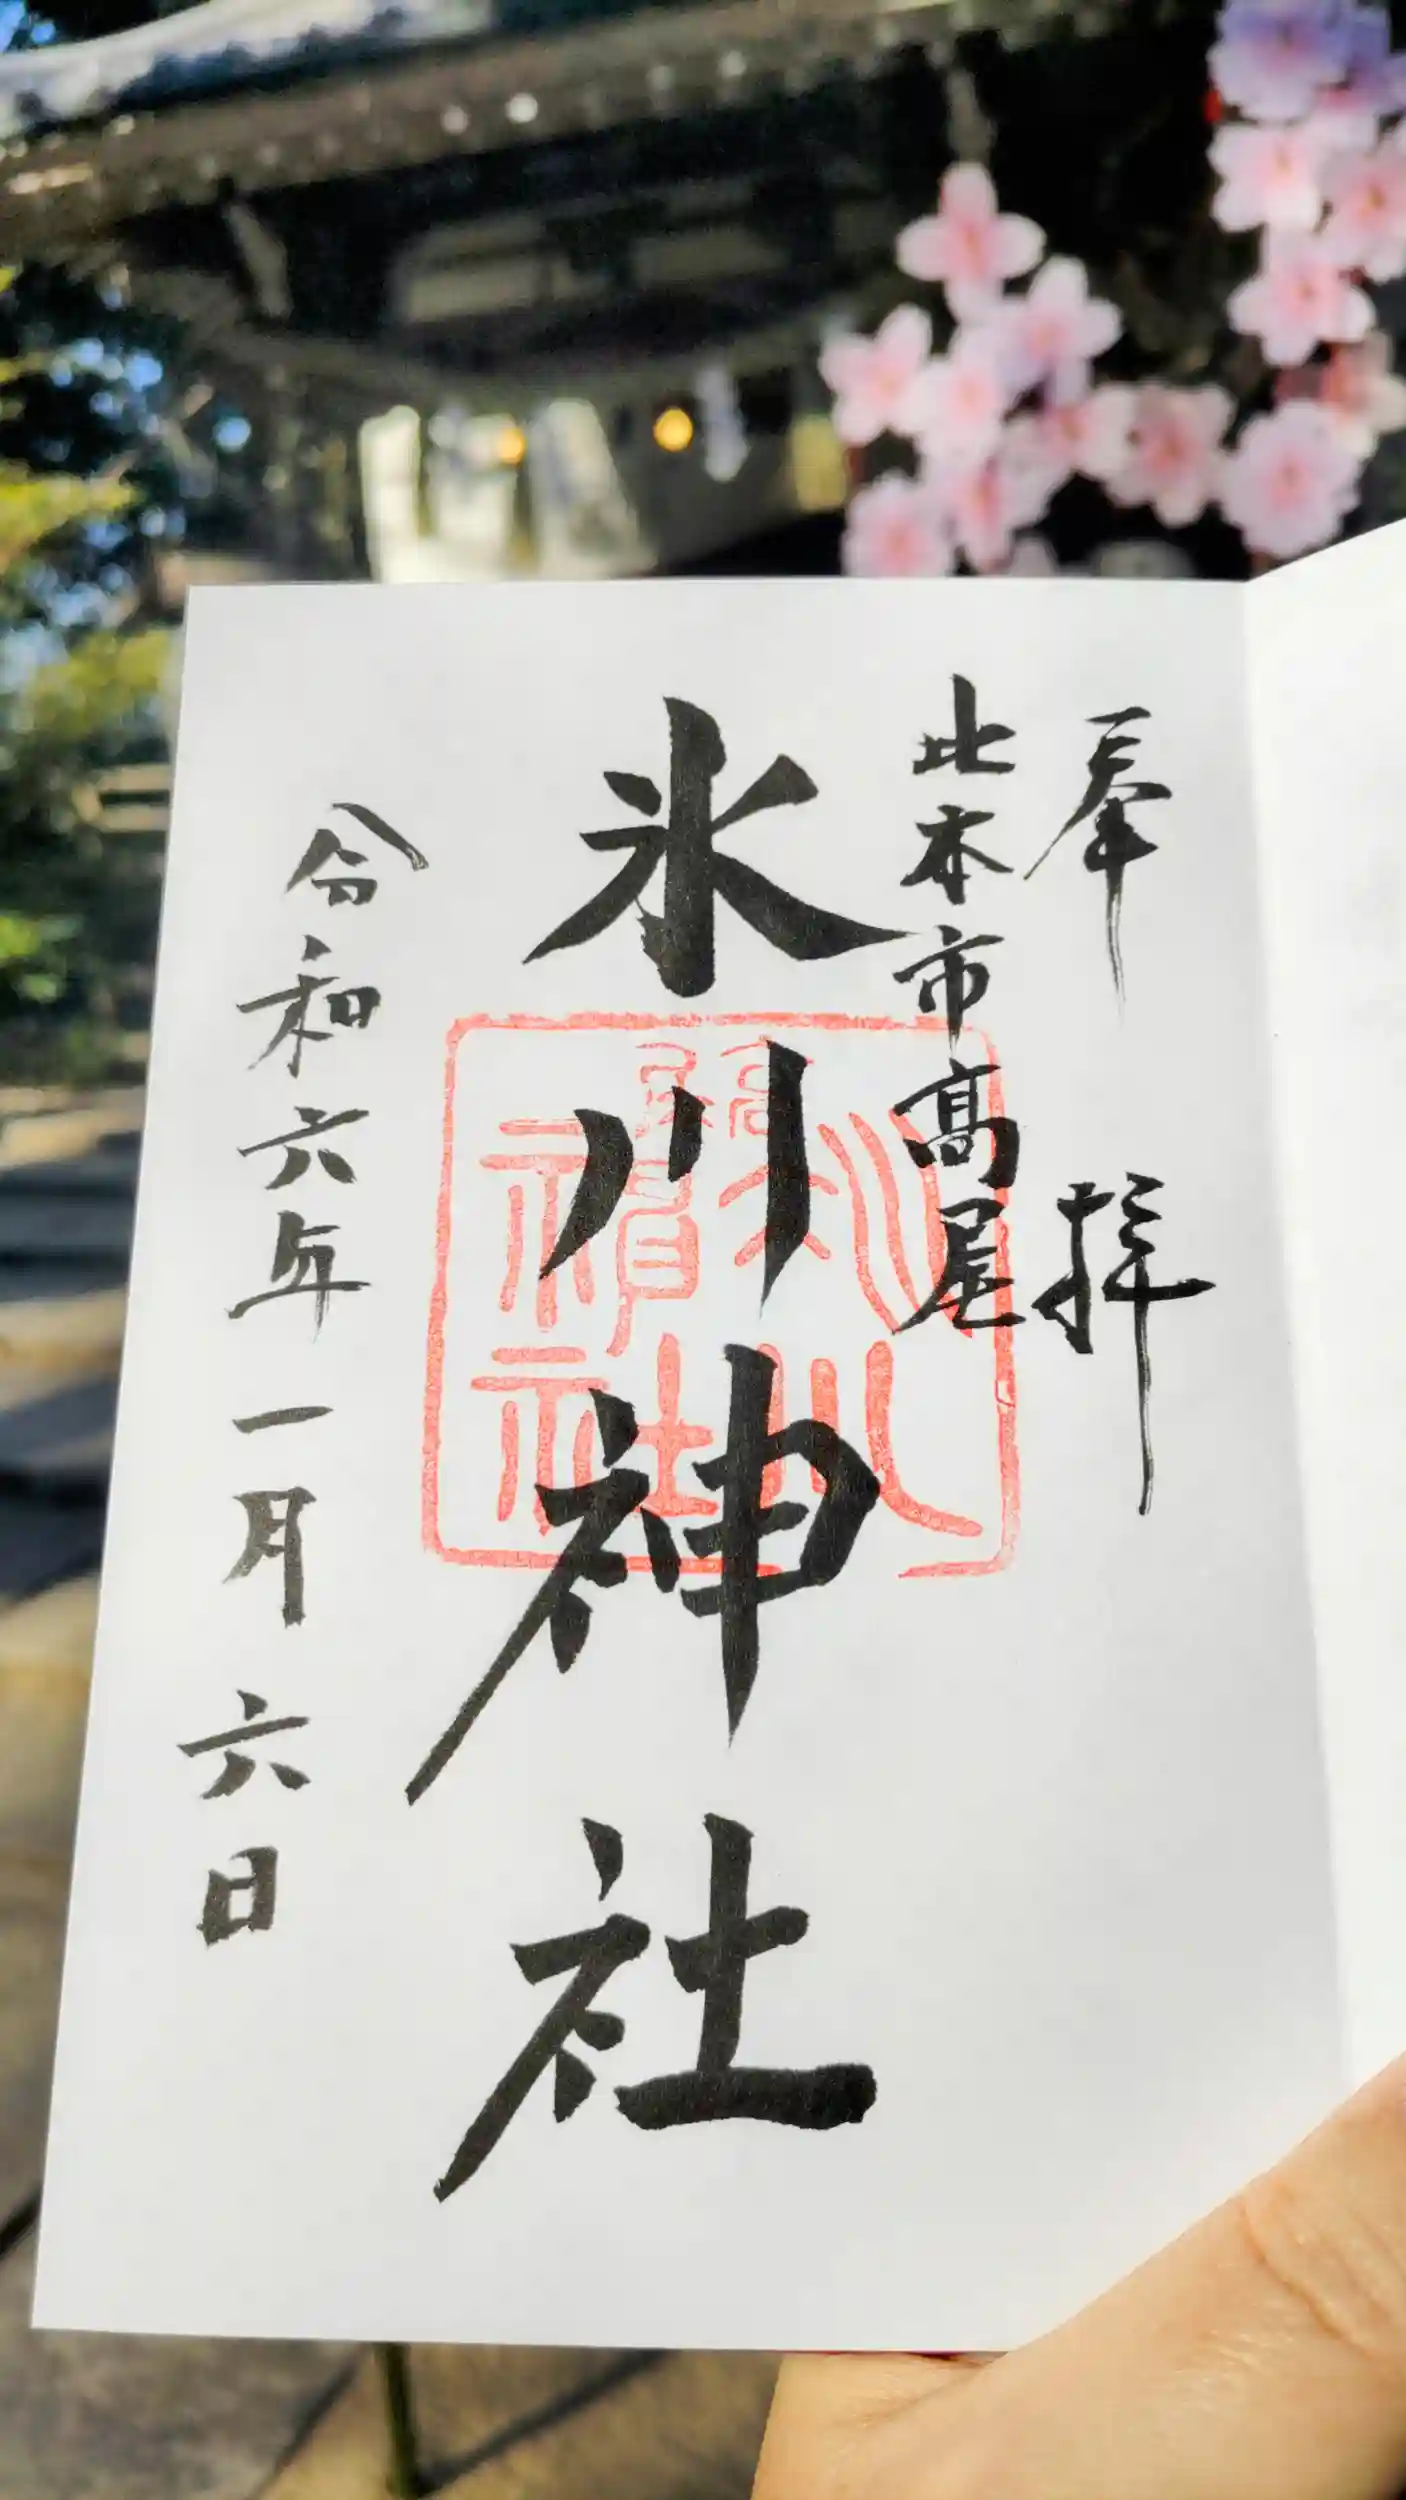 奉拝
北本市高尾
氷川神社
高尾氷川神社
令和六年一月六日